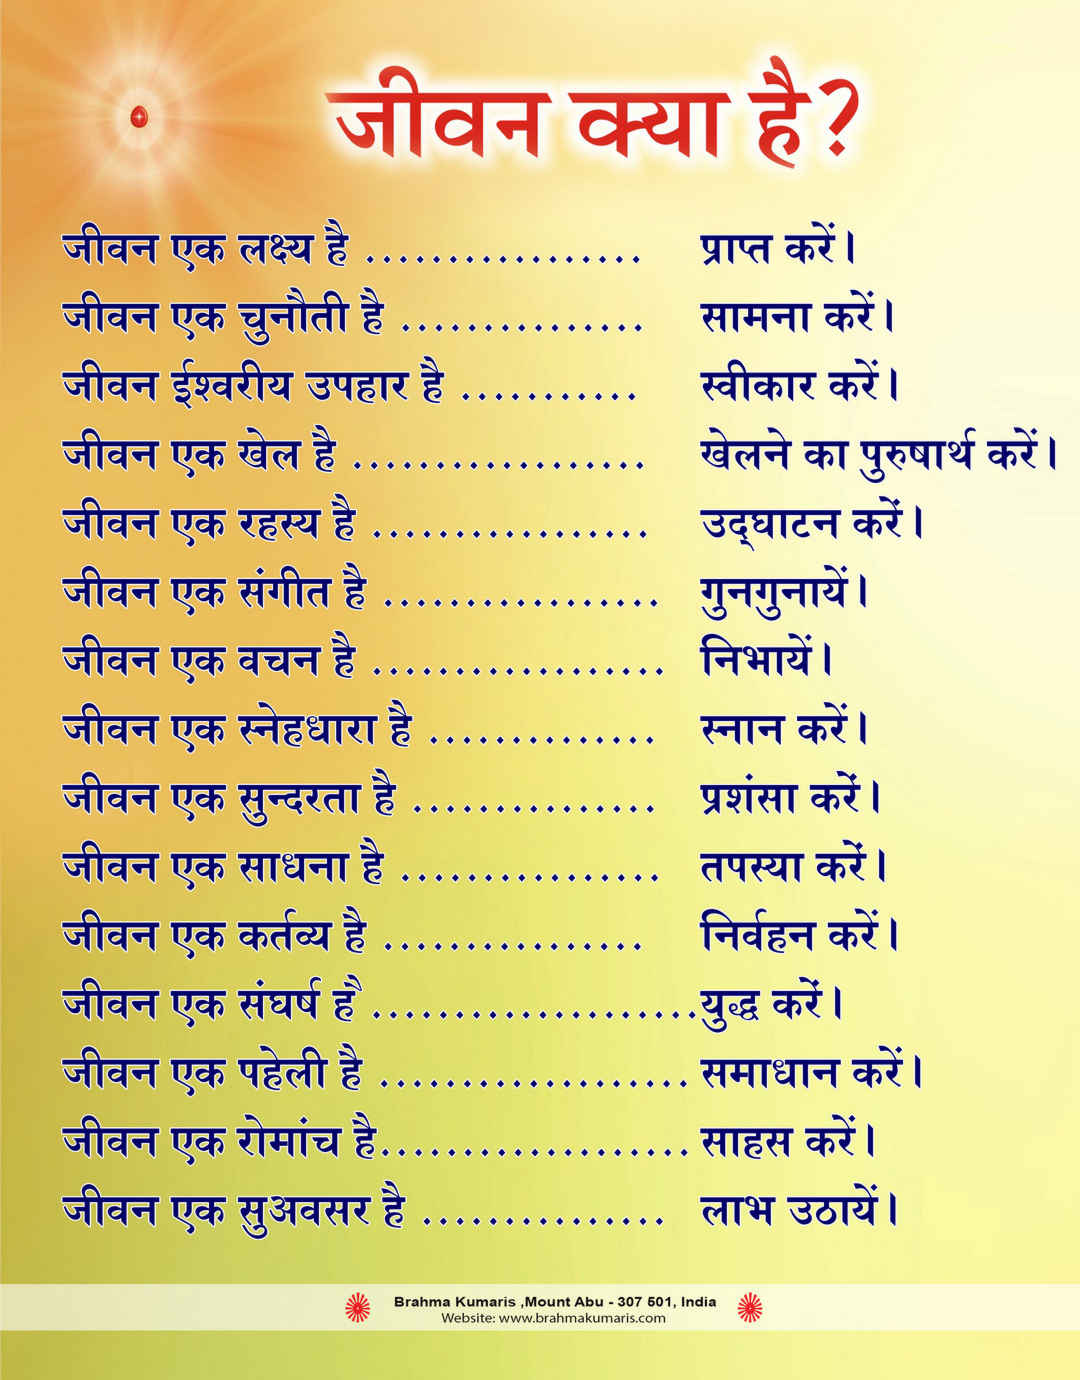 जीवन क्या है?
जीवन एक लक्ष्य है .................. प्राप्त करें।
जीवन एक चुनौती है ................ सामना करें।
जीवन ईश्वरीय उपहार है ........... स्वीकार करें।
जीवन एक खेल है ................... खेलने का पुरुषार्थ करें।
जीवन एक रहस्य है .................. उद्घाटन करें।
जीवन एक संगीत है .................. गुनगुनायें।
जीवन एक वचन है ................... निभायें।
जीवन एक स्नेहधारा है .............. स्नान करें।
जीवन एक सुन्दरता है ............... प्रशंसा करें।
जीवन एक साधना है ................ तपस्या करें।
जीवन एक कर्तव्य है ................. निर्वहन करें।
जीवन एक संघर्ष है .....................युद्ध करें।
जीवन एक पहेली है .................... समाधान करें।
जीवन एक रोमांच है.................... साहस करें।
जीवन एक सुअवसर है ............... लाभ उठायें।
Brahma Kumaris ,Mount Abu - 307 501, India
Website: www.brahmakumaris.com